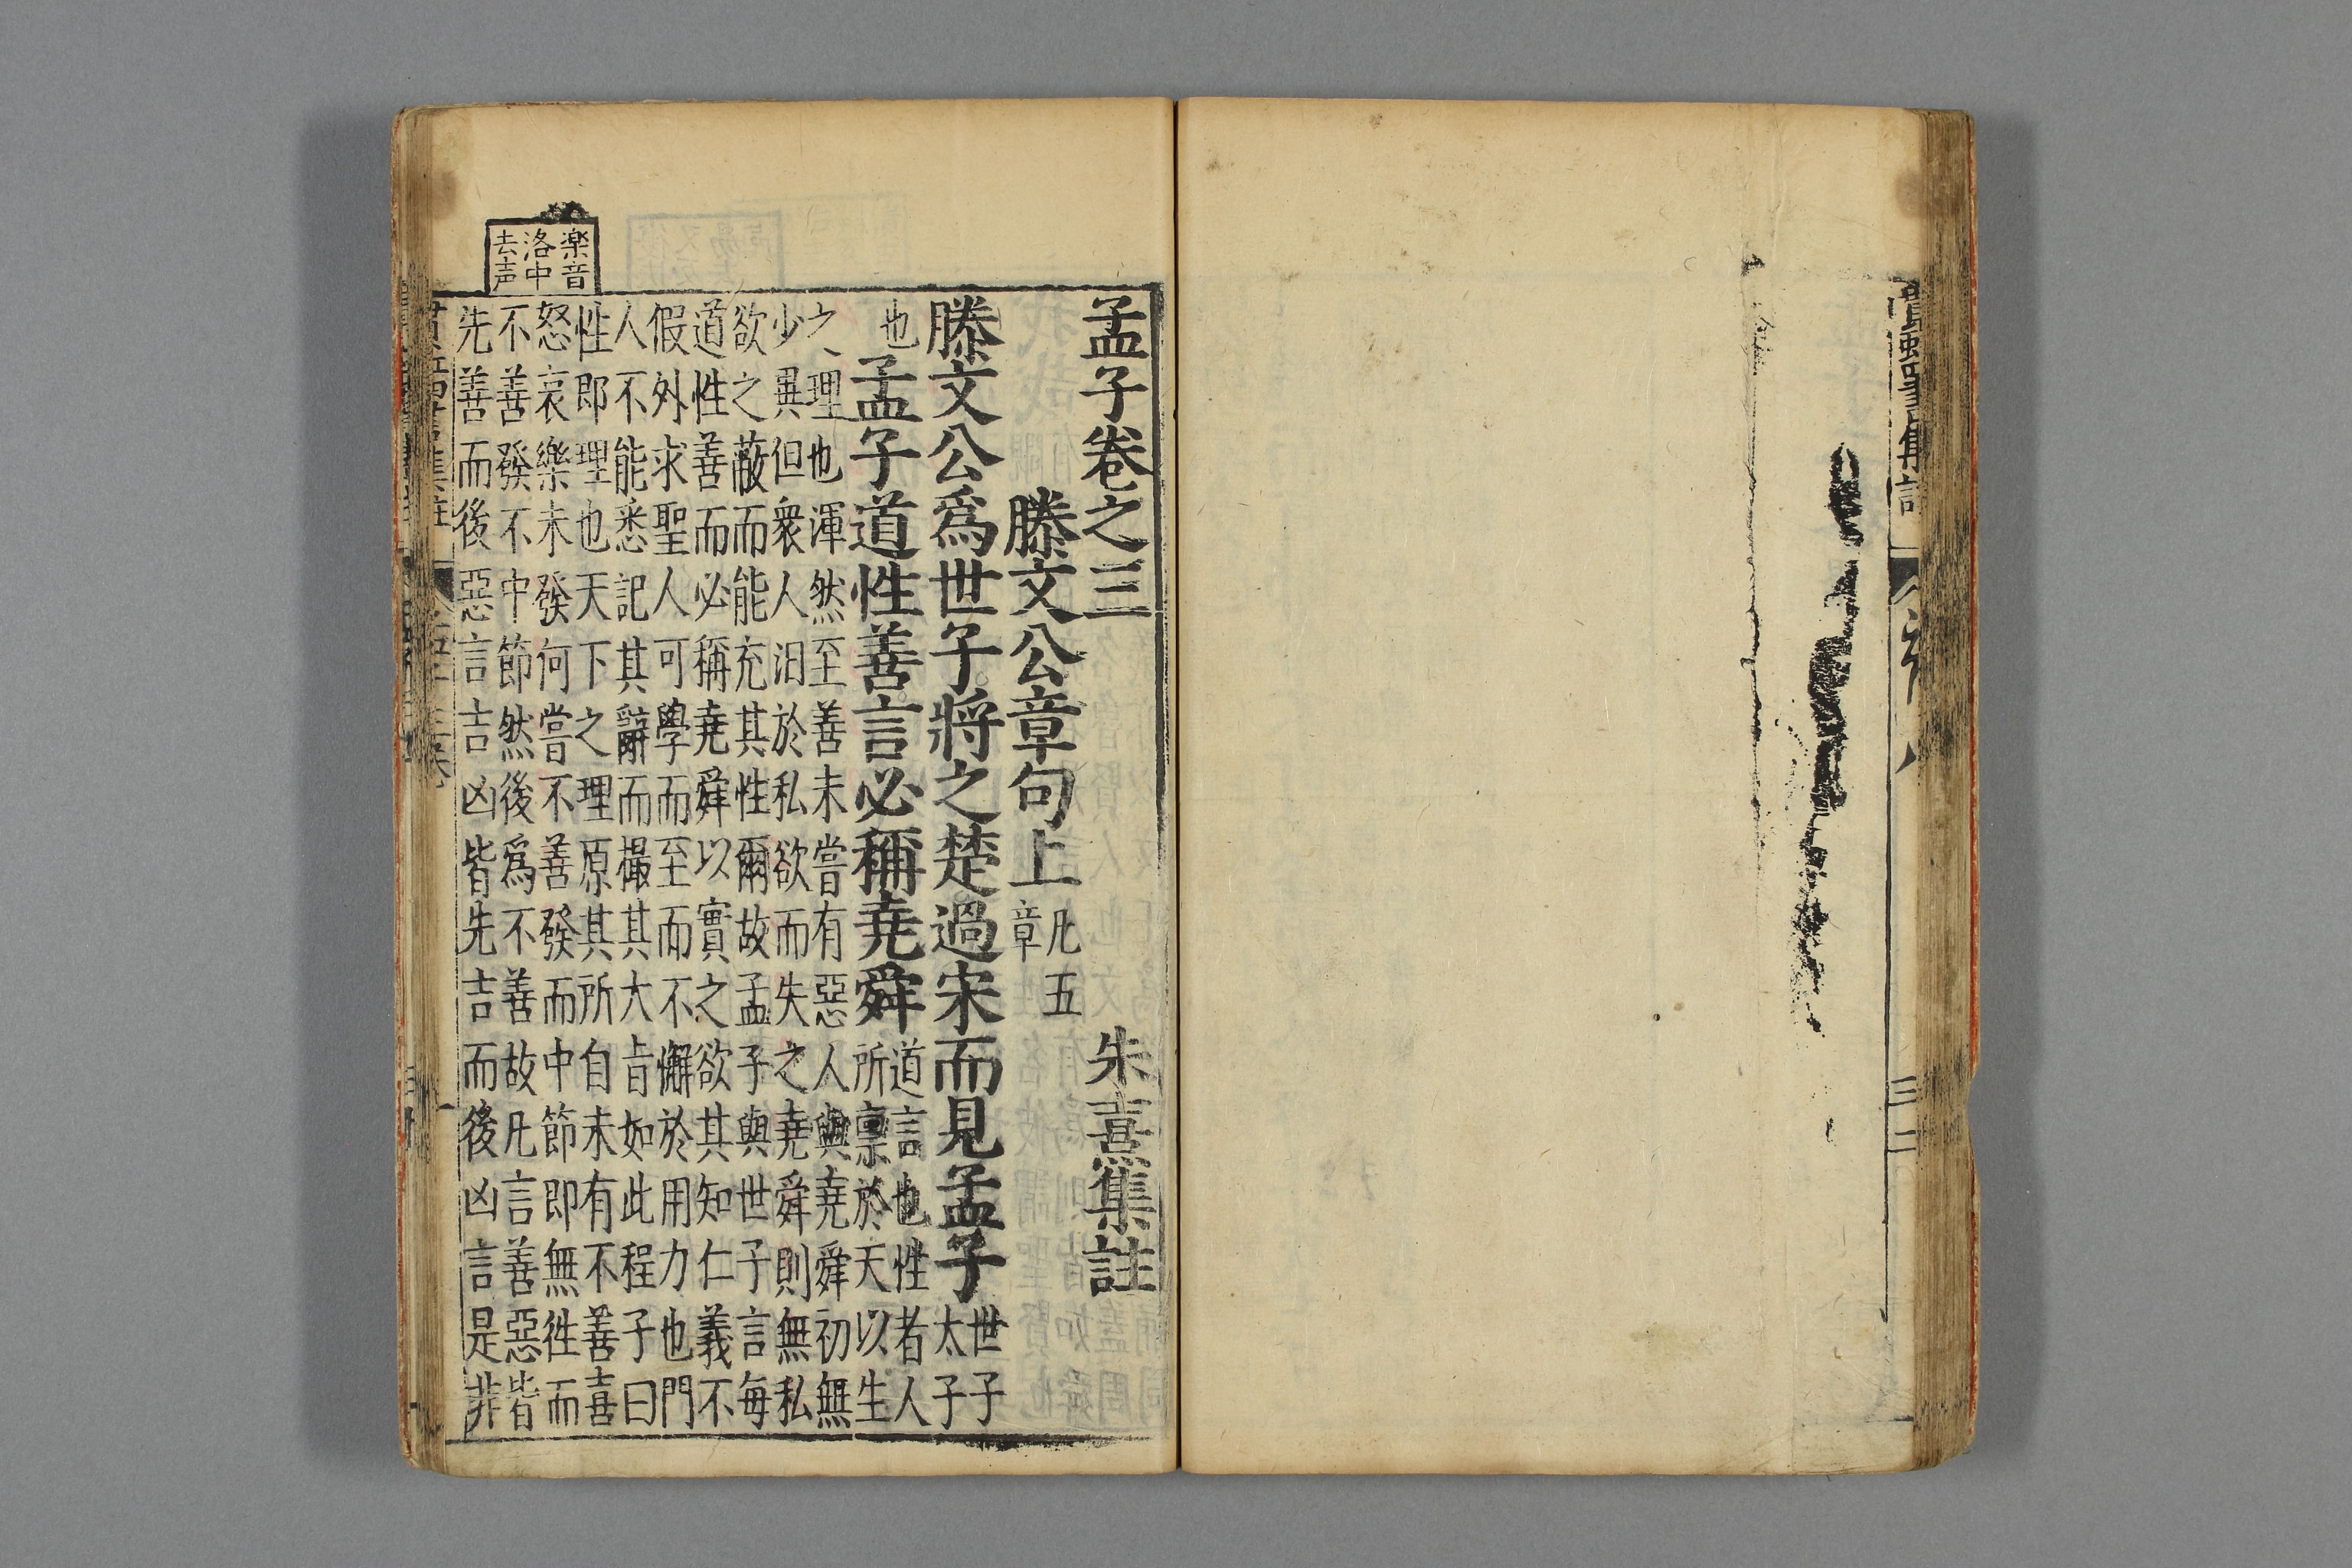 孟子卷之三 朱熹集註
滕文公章句上
凡五
章
滕文公爲世子將之楚過宋而見孟子
世子
太子
也
孟子道性善言必稱堯舜
道言也性者人
所禀於天以生
之理也渾然至善未嘗有惡人與堯舜初無
少異但衆人汩於私欲而失之堯舜則無私
欲之蔽而能充其性爾故孟子與世子言每
道性善而必稱堯舜以實之欲其知仁義不
假外求聖人可學而至而不懈於用力也門
人不能悉記其辭而撮其大旨如此程子曰
性即理也天下之理原其所自未有不善喜
怒哀樂未發何嘗不善發而中節即無徃而
不善發不中節然後爲不善故凡言善惡皆
先善而後惡言吉凶皆先吉而後凶言是非
楽音
洛中
去声
三二